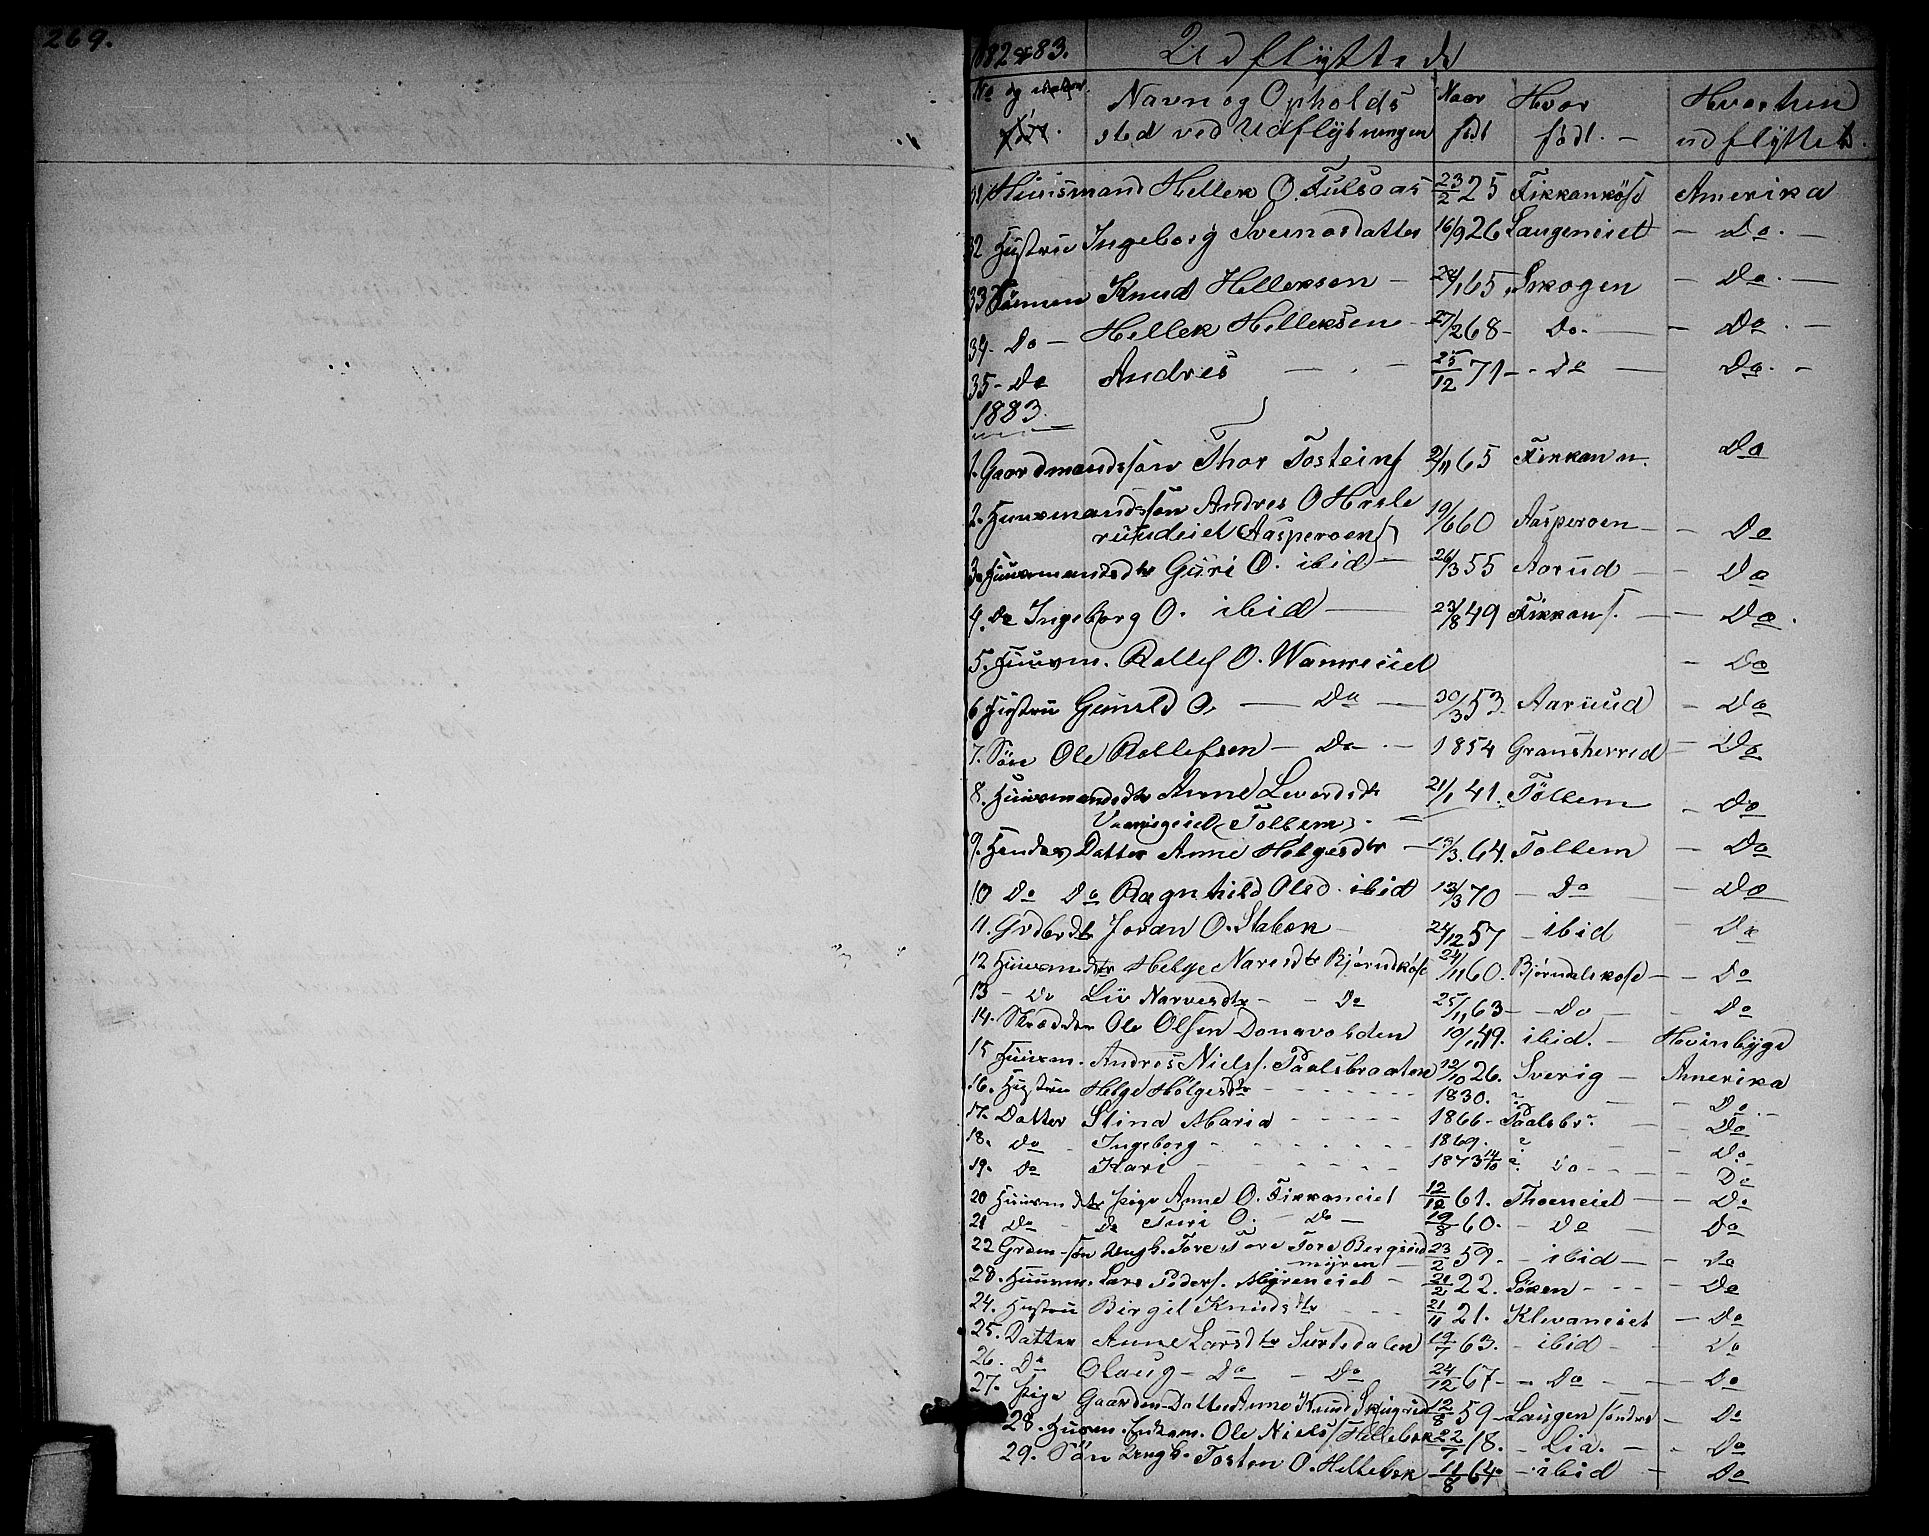 269.
1882 & 83. Udflyttede
No og
Navn og Opholds Naar Hvor Hvorhen
sted ved Udflytningen født født. - udflyttet.
31 Huusmand Hellek O. Fulsaas 23/2 25 Fikkankåsa Amerika
32 Hustru Ingeborg Sveinosdatter 16/9 26 Laugeneiet - Do. -
33 Sønnen Knud Helleksen - 24/1 65 Skogen - Do. -
34 - Do - Hellek Helleksen - 27/2 68 - Do. - - Do. -
35 - Do Andres - . - 25/12 71 - - Do - Do. -
1883.
1. Gaardmandssøn Thor Tosteins 2/11 65 Fikkan n. Do
2. Huusmandssøn Andres O Hasle 19/6 60 Aasperoen - - Do
rudeiet (Aasperoen)
3. Huusmandsdtr Guri O. ibid - 26/3 55 Aarud - - Do
4. Do Ingeborg O. ibid - 23/8 49 Fikkan s. - - Do.
5. Huusm. Rollef O. Wanneeiet - Do
6 Hustru Gunild O. - Do - 30/3 53 Aaruud - Do
7. Søn Ole Rollefsen - Do - 1854 Gransherred - Do
8. Huusmandsdtr Anne Levordsdtr 21/1 41. Tolbem - Do
(Tolbem).
9. Hendes Datter Anne Helgesdtr - 19/3. 64. Tolbem - Do
10 Do Do Ragnhild Olsd. ibid 13/3 70 - Do - Do
11. Grdbrdtr Joran O. Stabek - 24/12 57 - ibid - Do
12 Huusmdtr Helge Narvesdtr Bjørndkåsa 24/11 60. Bjørndalskåsa - - Do
13 - Do Liv Narvesdtr - - Do 25/11 63 - - Do - - Do
14. Skrædder Ole Olsen Donavolden 10/1 49. ibid. - Hovinbygd
15 Huusm. Andres Niels. Paalsbraaten 12/10 26. Sverig - Amerika
16. Hustru Helge Helgesdtr - - - 1830. ? - - Do. -
17. Datter Stina Maria - - - 1866 - Paalsbr. - Do
18. Do - Ingeborg - - - 1869. ? - Do.
19. Do Kari - - - 1873 14/10 ? Do - - - Do
20 Huusmdtr Pige Anne O. Fikkaneiet 12/12 61. Thoeneiet - - Do
21 Do - Do Turi O. - Do - 19/8 60. - Do - Do
22 Grdm-søn Ungk. Tore Tore Tore Bergseid 23/2 59 - - ibid - - Do
myren
23. Huusm. Lars Peders. Myreneiet - 21/2 22. Foken - - - Do
24. Hustru Birgit Knudsdtr - - 21/11 21. Klevaneiet - Do
25. Datter Anne Larsdtr Surtedalen 19/7 63. - ibid - - Do
26. Do Olaug - Do - Do 24/12 67 - - Do - - Do
27. Pige Gaardm-Datter Anne Knud Skjugrud 12/8 59 - Laugen søndre - Do
28. Huusm. Enkem. Ole Niels. Hellebek 22/7 18. - Lia. - - Do
29. Søn Ungk. Tosten O. Hellebek 11/8 64 - ibid - Do